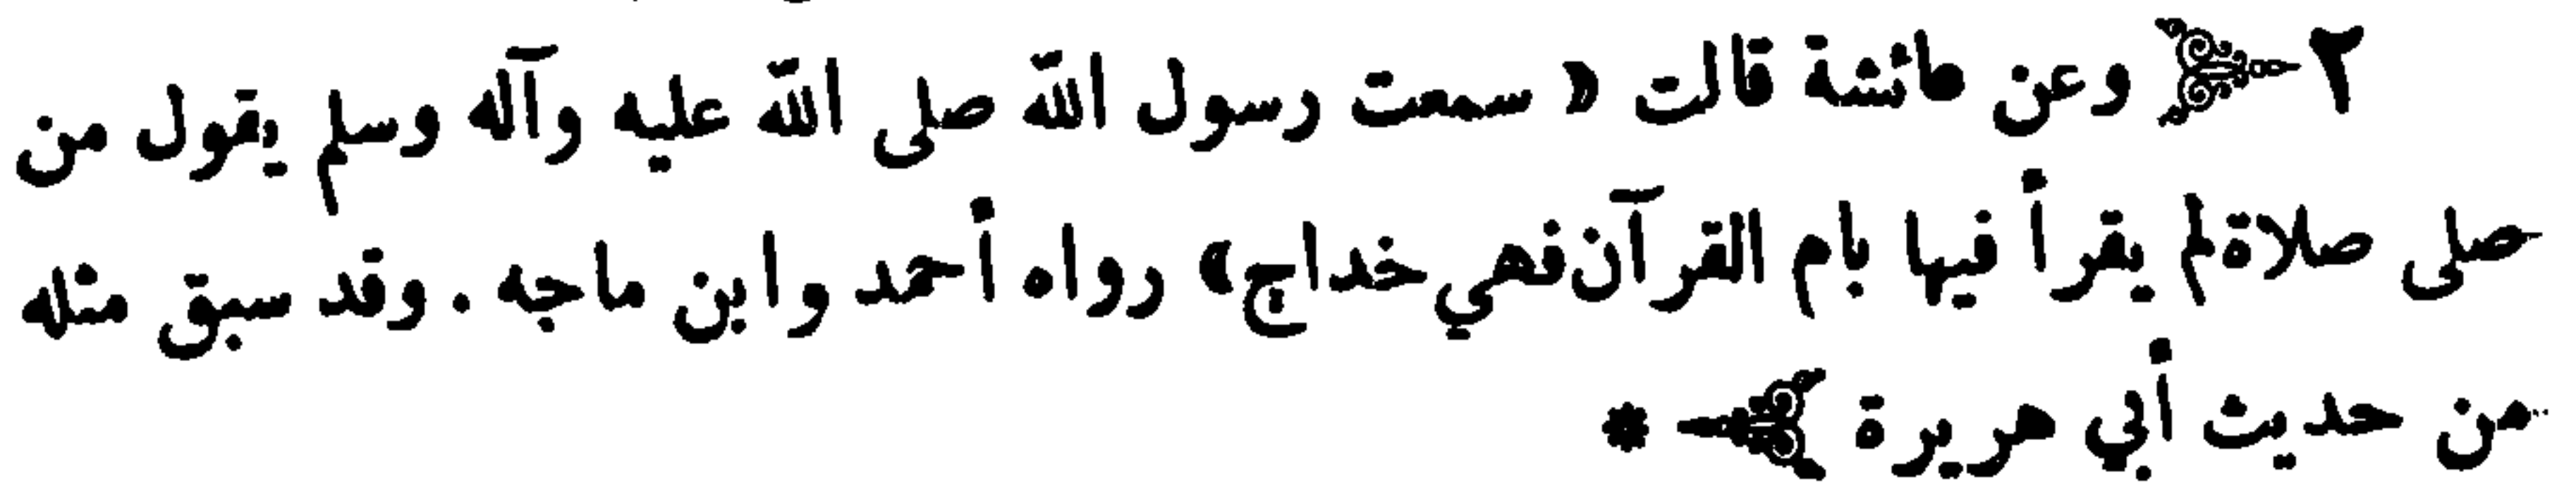 ٢ ﴿ وعن عائشة قالت « سمعت رسول الله صلى الله عليه وآله وسلم يقول من
صلى صلاة لم يقرأ فيها بام القرآن فهي خداج » رواه أحمد وابن ماجه . وقد سبق مثله
من حديث أبي هريرة ﴾ *